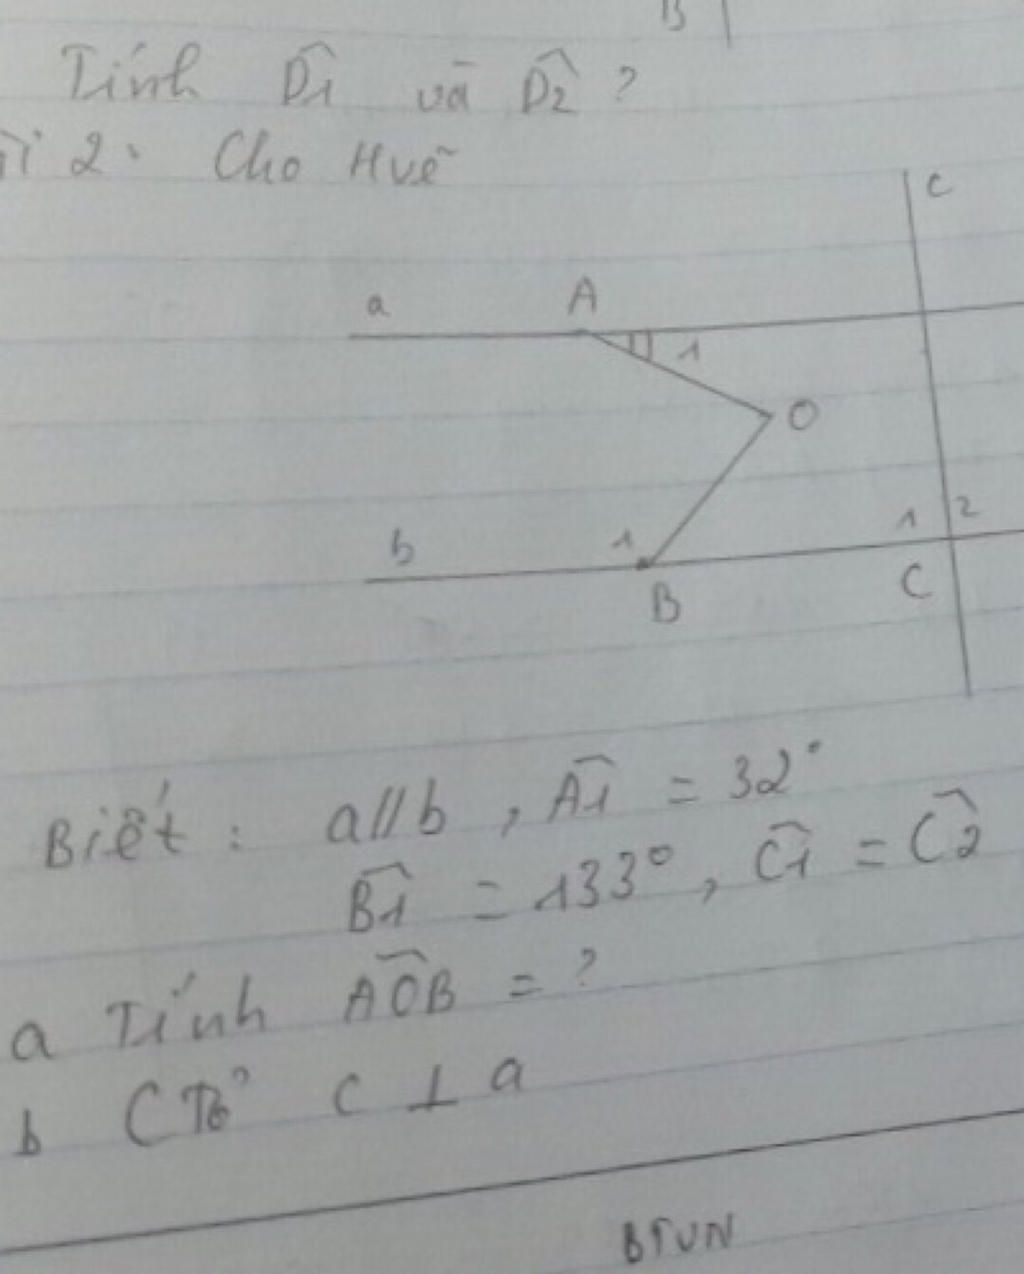 B
Tính D̂1 và D̂2 ?
ài 2: Cho HVẽ
c
a A
1
O
b 1 1 2
B C
Biết : a//b , Â1 = 32°
B̂1 = 133°, Ĉ1 = Ĉ2
a Tính AÔB = ?
b CTỏ c ⊥ a
BTVN